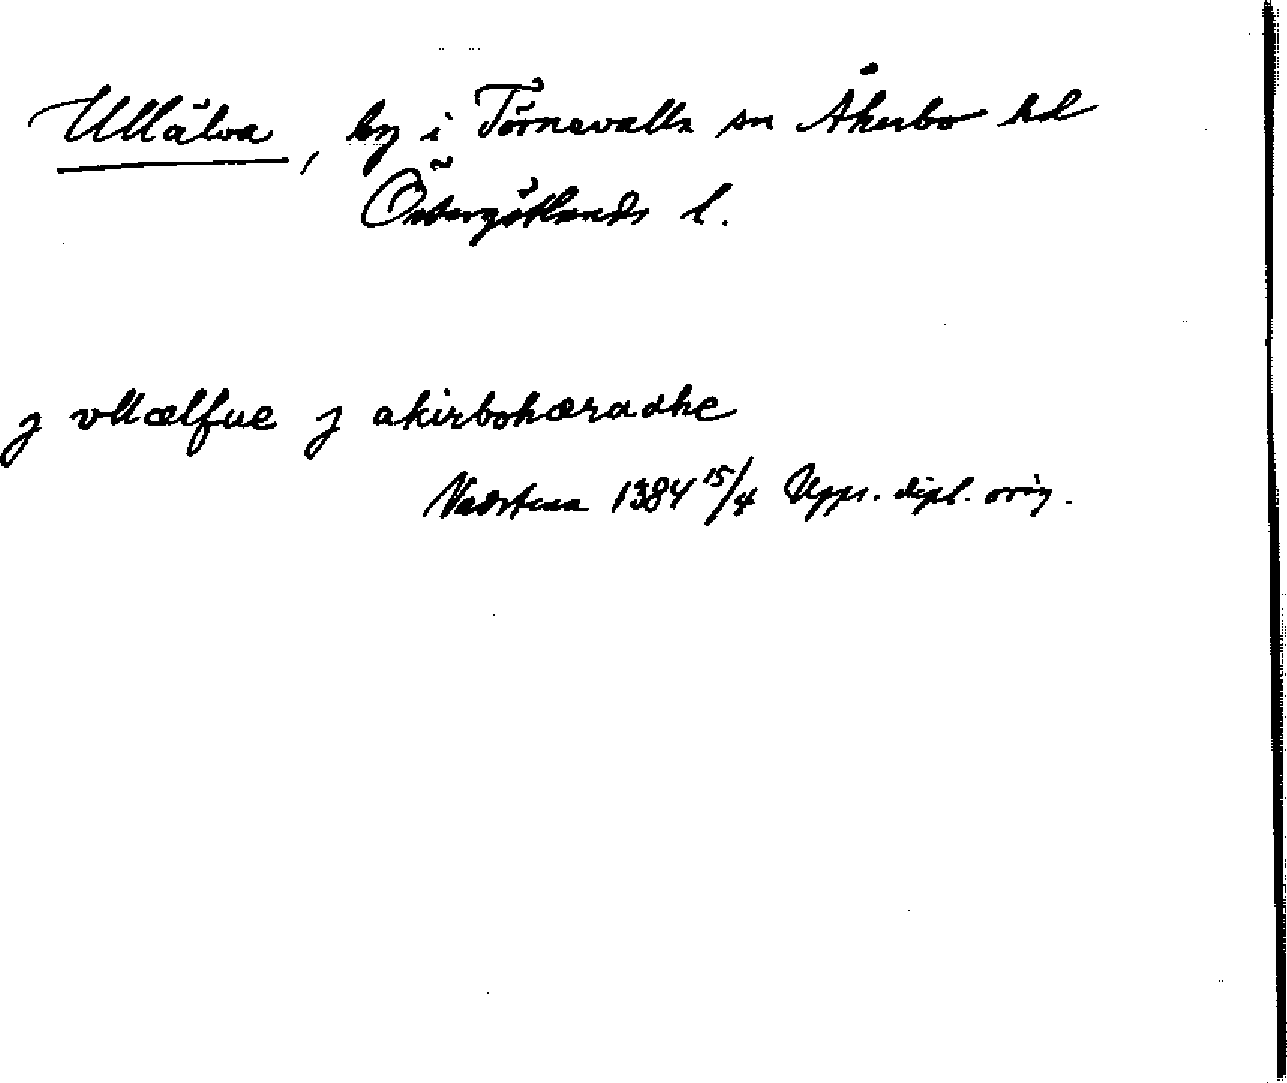 Ullälva, by i Törnevalla sn Åkerbo hd
Östergötlands l.
j vllælfue j akirbohæradhe
Vadstena 1384 15/4 Upps. dipl. orig.